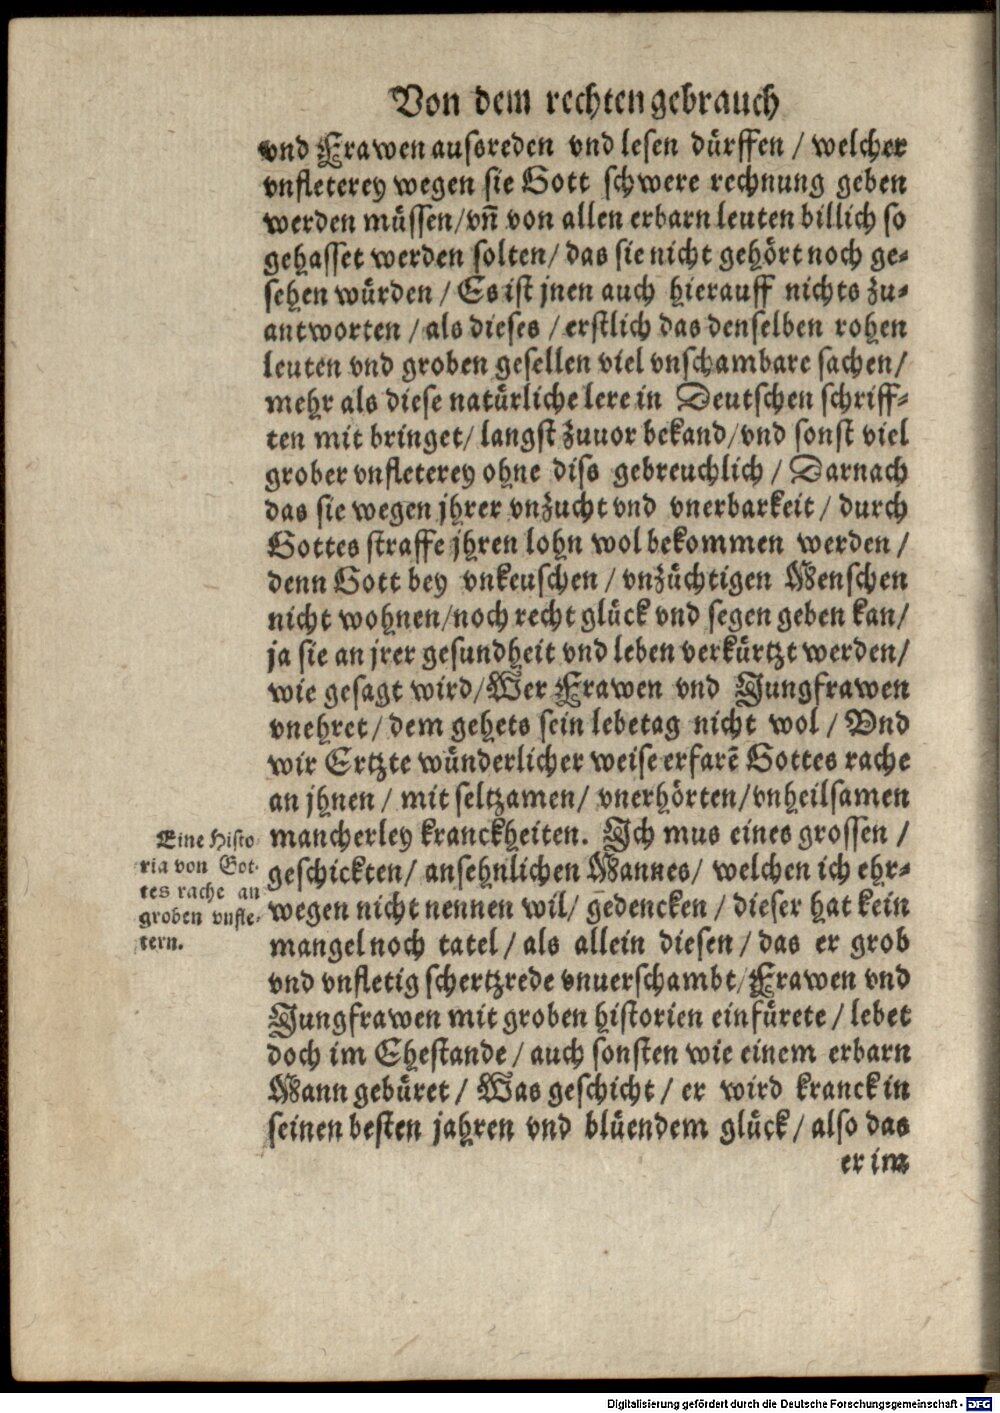 Von dem rechten gebrauch
vnd Frawen ausreden vnd lesen dürffen / welcher
vnfleterey wegen sie Gott schwere rechnung geben
werden müssen/vñ von allen erbarn leuten billich so
gehasset werden solten/ das sie nicht gehört noch ge-
sehen würden / Es ist jnen auch hierauff nichts zu-
antworten / als dieses / erstlich das denselben rohen
leuten vnd groben gesellen viel vnschambare sachen/
mehr als diese natürliche lere in Deutschen schriff-
ten mit bringet/ langst zuuor bekand/vnd sonst viel
grober vnfleterey ohne diss gebreuchlich / Darnach
das sie wegen jhrer vnzucht vnd vnerbarkeit / durch
Gottes straffe jhren lohn wol bekommen werden /
denn Gott bey vnkeuschen / vnzüchtigen Menschen
nicht wohnen/noch recht glück vnd segen geben kan/
ja sie an jrer gesundheit vnd leben verkürtzt werden/
wie gesagt wird/Wer Frawen vnd Jungfrawen
vnehret/ dem gehets sein lebetag nicht wol / Vnd
wir Ertzte wünderlicher weise erfarẽ Gottes rache
an jhnen / mit seltzamen/ vnerhörten/vnheilsamen
mancherley kranckheiten. Ich mus eines grossen /
geschickten/ ansehnlichen Mannes/ welchen ich ehr-
wegen nicht nennen wil/ gedencken / dieser hat kein
mangel noch tatel / als allein diesen / das er grob
vnd vnfletig schertzrede vnuerschambt/Frawen vnd
Jungfrawen mit groben historien einfürete / lebet
doch im Ehestande / auch sonsten wie einem erbarn
Mann gebüret / Was geschicht / er wird kranck in
seinen besten jahren vnd blüendem glück/ also das
er im
Eine Histo-
ria von Got-
tes rache an
groben vnfle-
tern.
Digitalisierung gefördert durch die Deutsche Forschungsgemeinschaft - DFG